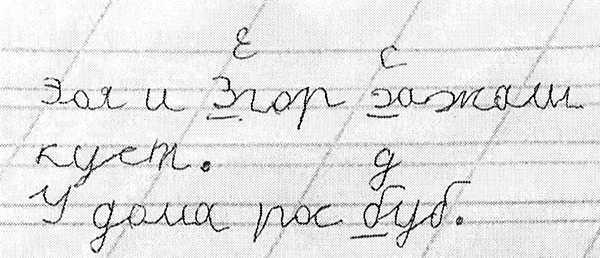 Е с
Зоя и Згор зажали
куст. д
У дома рос буб.